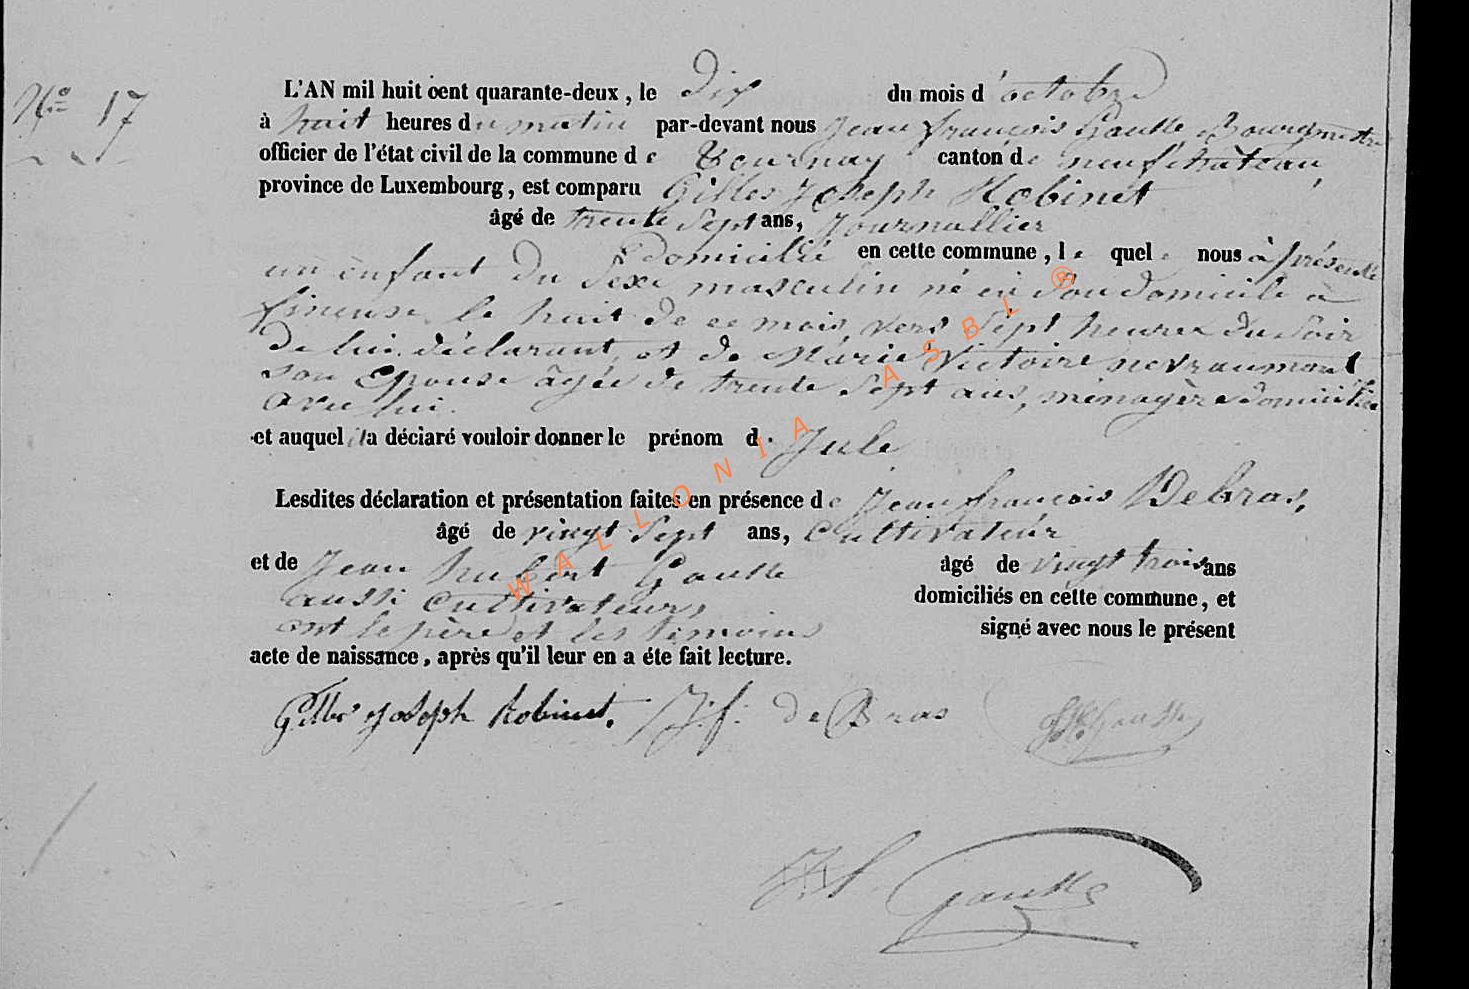 N° 17
L'AN mil huit cent quarante-deux, le dix du mois d'octobre
à huit heures du matin par-devant nous Jean françois Gausse Bourgmestre
officier de l'état civil de la commune de Tournay canton de neufchâteau,
province de Luxembourg, est comparu Gilles Joseph Robinet
âgé de trente sept ans, Journallier
domicilié en cette commune, le quel nous à présenté
un enfant du sexe masculin né en son domicile à
fineuse le huit de ce mois vers sept heures du soir
de lui déclarant, et de Marie Victoire nevraumont
son Epouse âgée de trente sept ans, ménagère domiciliée
avec lui.
et auquel il a déclaré vouloir donner le prénom d. Jule
Lesdites déclaration et présentation faites en présence de Jean françois DeBras,
âgé de vingt sept ans, Cultivateur
et de Jean hubert Gausse âgé de vingt trois ans
aussi Cultivateurs domiciliés en cette commune, et
ont le père et les témoins signé avec nous le présent
acte de naissance, après qu'il leur en a éte fait lecture.
Gilles Joseph Robinet. J. f. de Bras JH Gausse
Gausse
WALLONIA ASBL ®